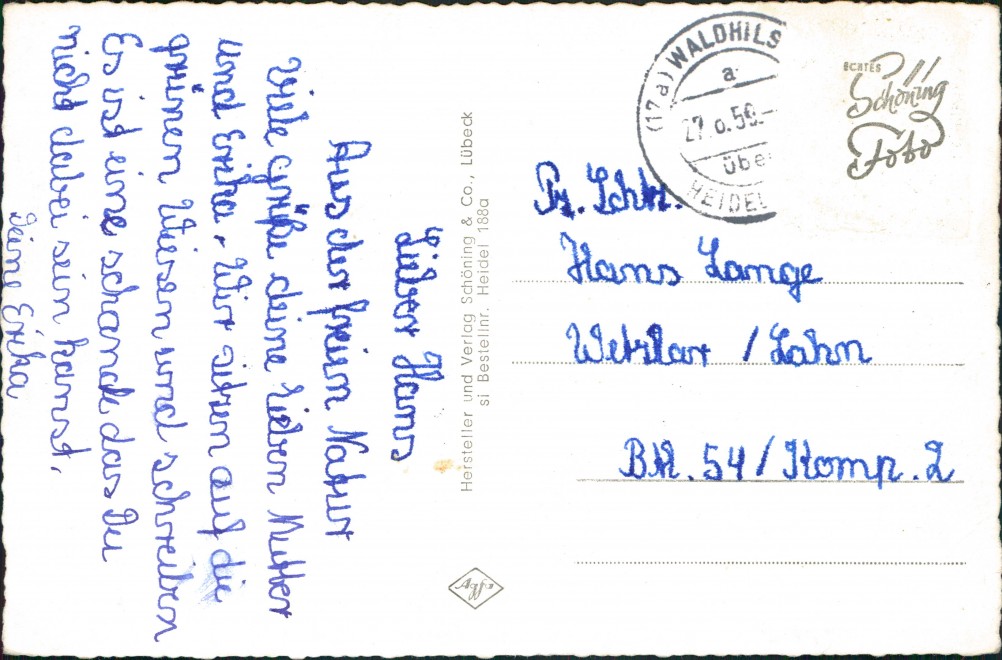 Lieber Hans
Aus der freien Natur
Viele grüße deine lieben Mutter
und Erika. Wir sitzen auf die
grünen Wiesen und schreiben
Es ist eine schande das Du
nicht dabei sein kanst.
Deine Erika
Hersteller und Verlag Schöning & Co., Lübeck
si Bestellnr. Heidel 188a
Agfa
(17a) WALDHILS
a
59.-
übe
HEIDEL
ECHTES
Schöning
Foto
Pz. Schtz.
Hans Lange
Wetzlar / Lahn
Btl. 54 / Komp. 2